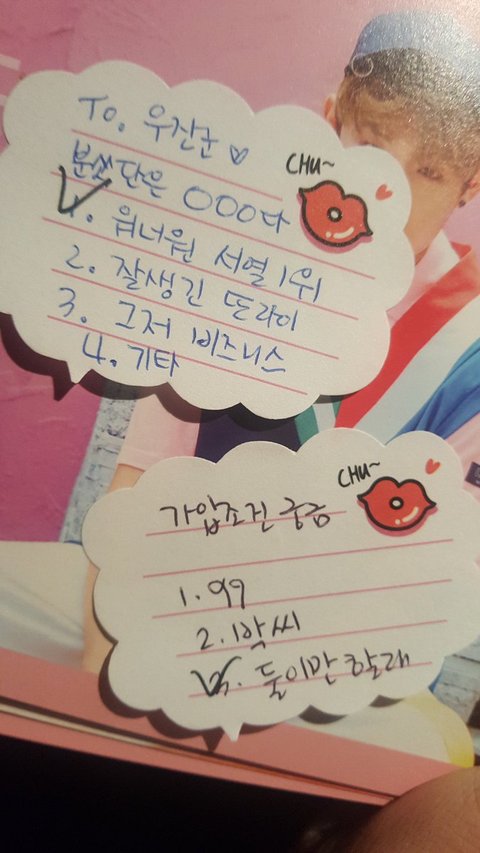 To. 우진군 ♡
분쏘단은 OOO다
1. 워너원 서열 1위
2. 잘생긴 또라이
3. 그저 비즈니스
4. 기타
CHU~
가입조건 궁금
1. 99
2. 박씨
3. 둘이만 할래
CHU~